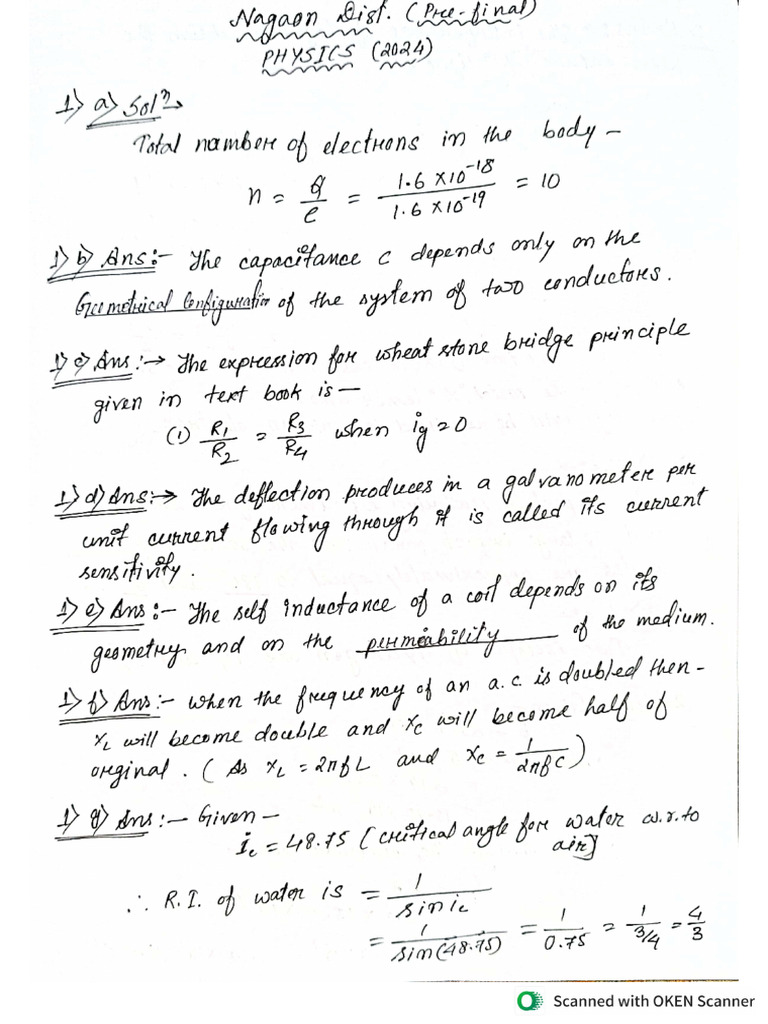 Nagaon Dist. (Pre-final)
PHYSICS (2024)
1) a) Solⁿ→
Total number of electrons in the body –
n = q/e = 1.6 ×10⁻¹⁸ / 1.6 ×10⁻¹⁹ = 10
1) b) Ans:- The capacitance C depends only on the
Geometrical Configuration of the system of two conductors.
1) c) Ans:→ The expression for wheat stone bridge principle
given in text book is—
(i) R₁/R₂ = R₃/R₄ when ig = 0
1) d) Ans:→ The deflection produces in a galvanometer per
unit current flowing through it is called its current
sensitivity.
1) e) Ans:- The self inductance of a coil depends on its
geometry and on the permeability of the medium.
1) f) Ans:- when the frequency of an a.c. is doubled then–
X_L will become double and X_C will become half of
orginal. (As X_L = 2πfL and X_C = 1/2πfC)
1) g) Ans:- Given –
i_c = 48.75 [critical angle for water w.r.to
air]
∴ R.I. of water is = 1/sin i_c
= 1/sin(48.75) = 1/0.75 = 1/3/4 = 4/3
Scanned with OKEN Scanner